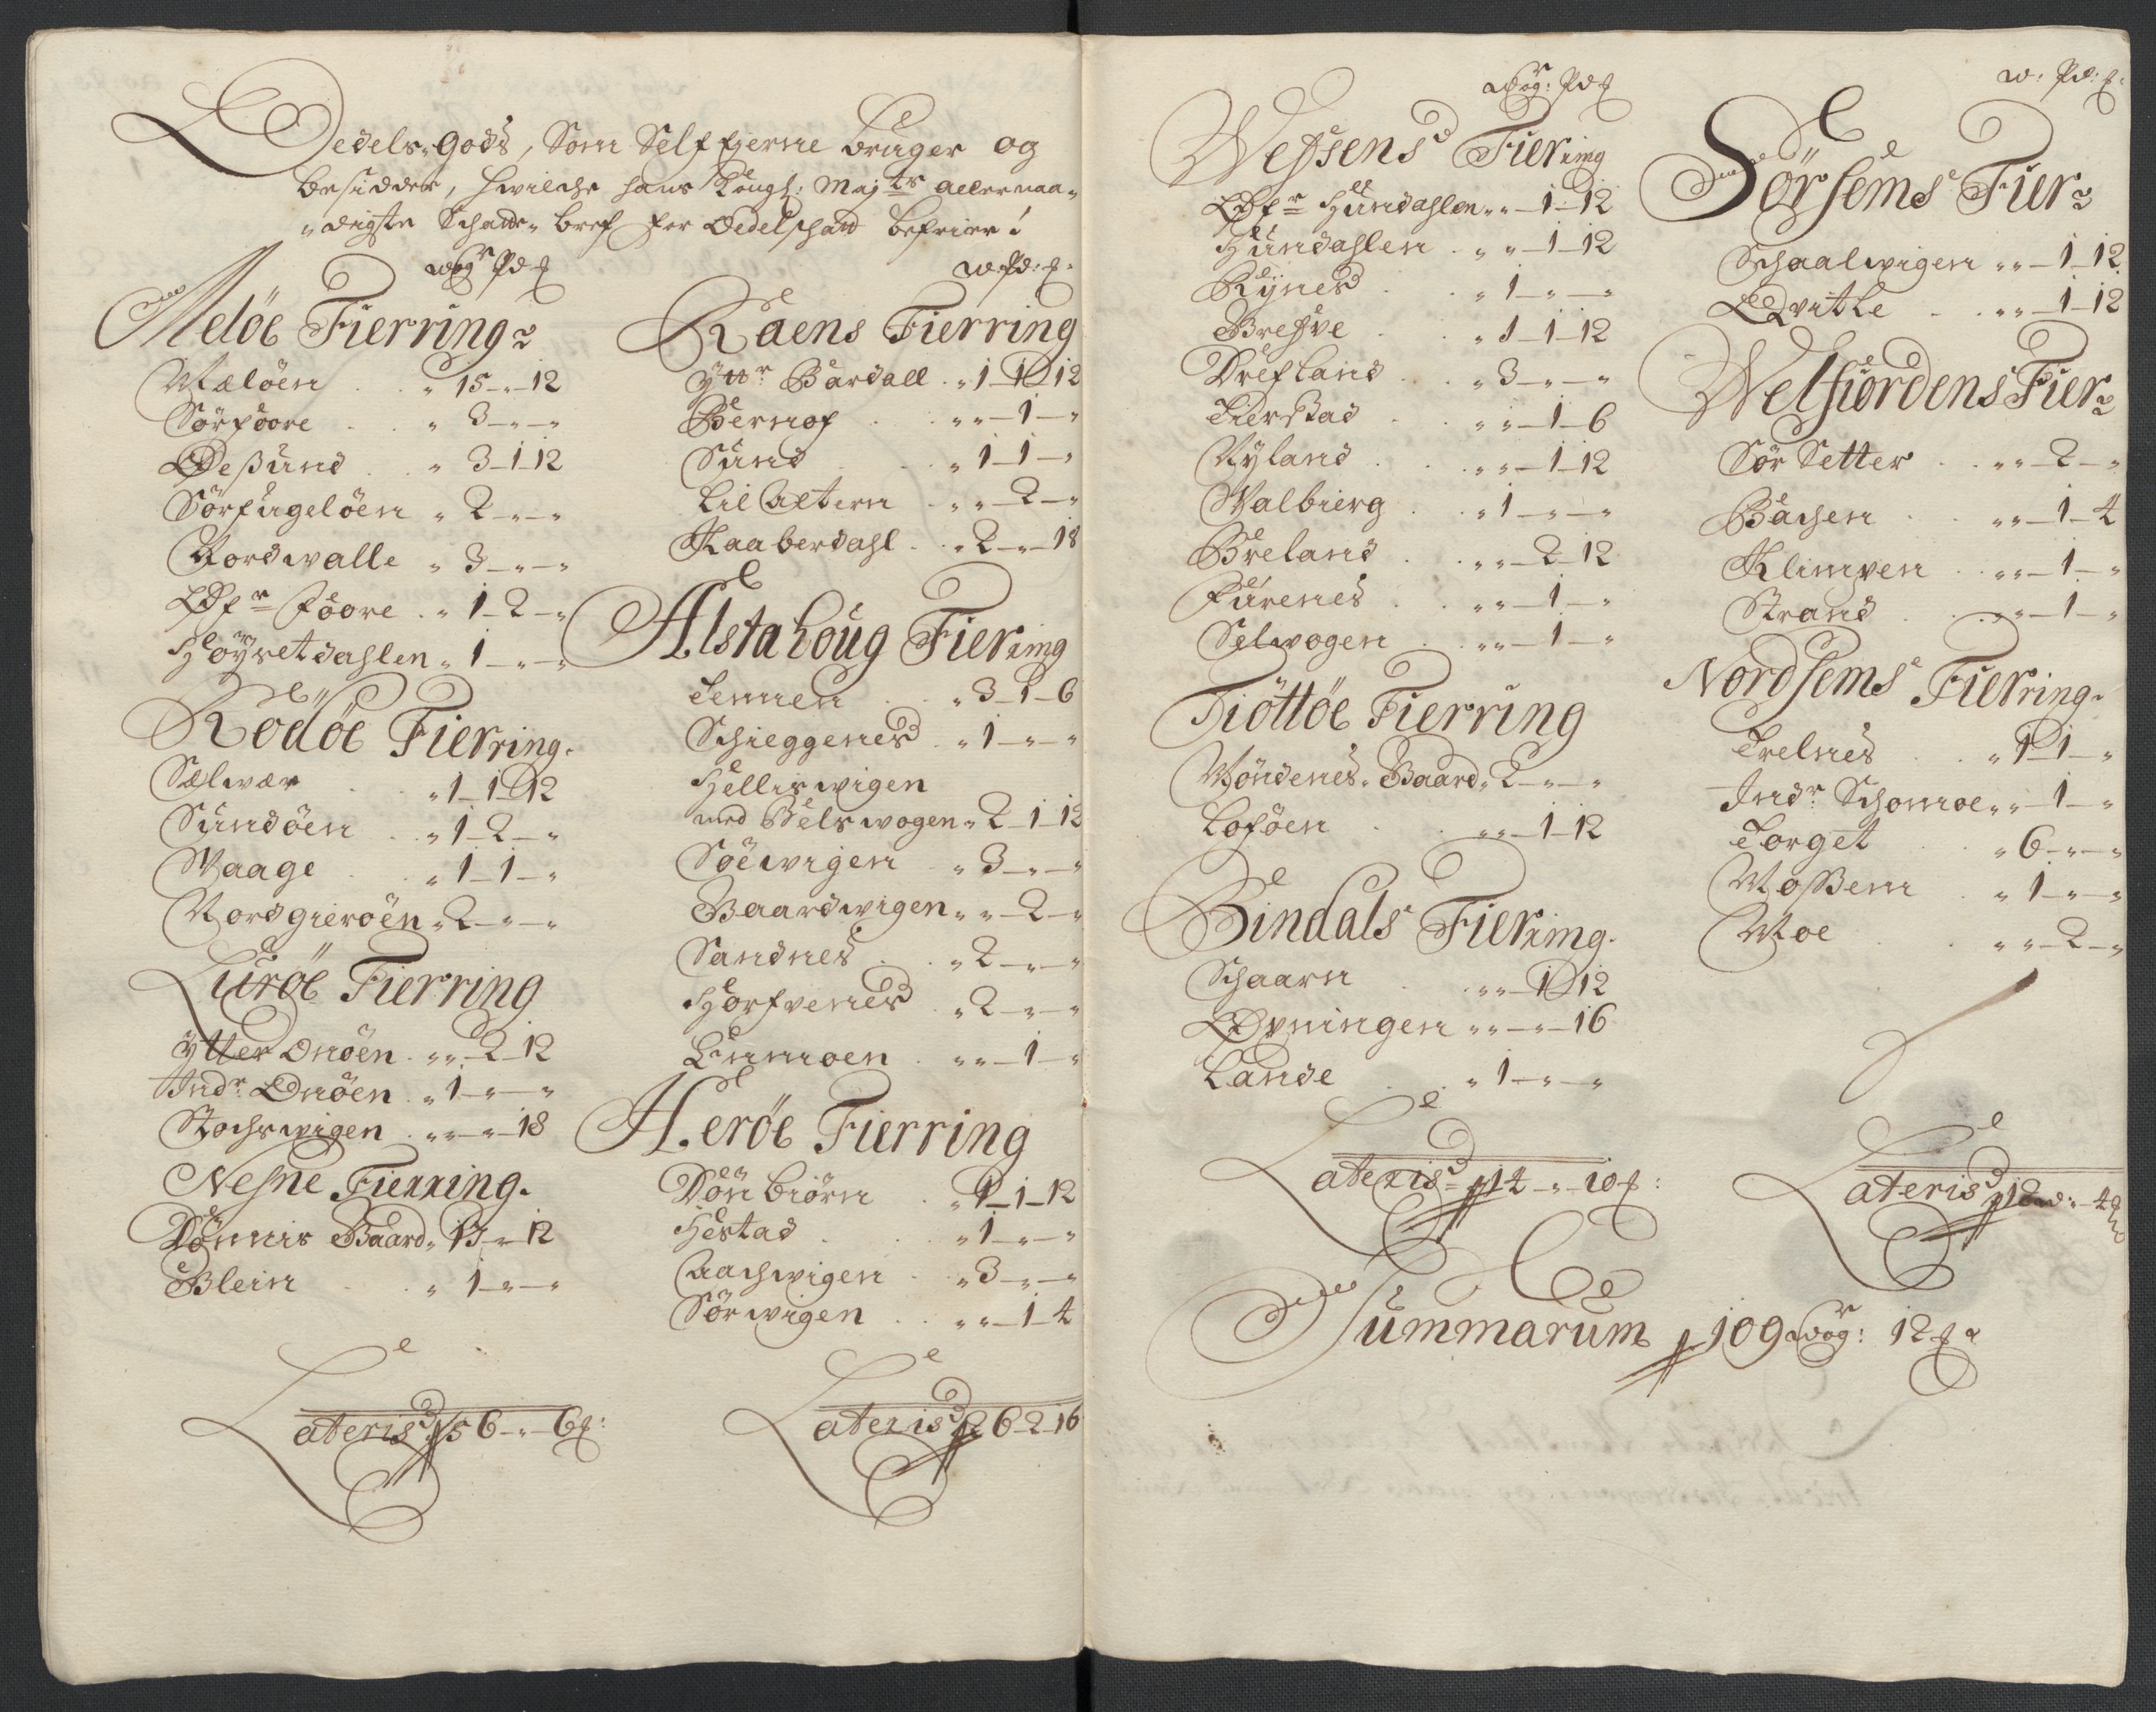 Oedels, Gods, Som Selffejerne bruger og
besidder, hvilche hans Kongl: Majts allernaa-
"digste Schatte" bref for Oedelschatt befrier:
wogr Pd ℔
Meløe Fierring
Mæløen " 15 - " - 12
Sørfoøre " 3 - " - "
Øeßund " 3 - 1 - 12
Sørfugeløen " 2 - " - "
Nordwalle " 3 - " - "
Øfr føore " 1 - 2 - "
Høysetdahlen " 1 - " - "
Rødøe Fierring.
Sælwær " 1 - 1 - 12
Sundøen " 1 - 2 - "
Waage " 1 - 1 - "
Nordgierøen " 2 - " - "
Lurøe Fierring
Ytter Onøen " " - 2 - 12
Indr Onøen " 1 - " - "
Stochswigen " " - " - 18
Nesne Fierring.
Dønnis Gaard " 13 - " - 12
Glein " 1 - " - "
Lateris 56 - " - 6 ℔:
w: Pd: ℔:
Raens Fierring
Yttr Bardall " 1 - 1 - 12
Bernof " " - 1 - "
Sund " 1 - 1 - "
Lil Altern " " - 2 - "
Kaaberdahl " 2 - " - 18
Alstahoug Fiering
Tennen " 3 - 1 - 6
Schieggenes " 1 - " - "
Helliswigen
med Belswogen " 2 - 1 - 12
Søewigen " 3 - " - "
Gaardwigen " " - 2 - "
Sandnes " 2 - " - "
Horfvenes " 2 - " - "
Lunmoen " " - 1 - "
Herøe Fierring
Døn biørn " 1 - 1 - 12
Hestad " 1 - " - "
Aachwigen " 3 - " - "
Sørwigen " " - 1 - 4
Lateris 26 - 2 - 16
wogr: Pd ℔
Wefsens Fiering
Øfr Hundahlen " " - 1 - 12
Hundahlen " " - 1 - 12
Rynes " 1 - " - "
Grefve " 1 - 1 - 12
Drefland " 3 - " - "
Tierstad " " - 1 - 6
Nyland " " - 1 - 12
Walbierg " 1 - " - "
Breland " " - 2 - 12
Furenes " " - 1 - "
Selwogen " " - 1 - "
Tiøttøe Fierring
Mondenes Gaard " 2 - " - "
Loføen " " - 1 - 12
Bindals Fiering.
Schaarn " " - 1 - 12
Øvningen " " - " - 16
Lande " 1 - " - "
Lateris 14 - " - 10 ℔:
w: Pd: ℔:
Sørsems Fier:
Schaalwigen " " - 1 - 12
Qvitle " " - 1 - 12
Welfiordens Fier:
Sør Setter " " - 2 - "
Bachen " " - 1 - 4
Klimpen " " - 1 - "
Strand " " - 1 - "
Nordsems Fierring.
Trelnes " 1 - 1 - "
Indr Schomoe " " - 1 - "
Torget " 6 - " - "
Moßem " 1 - " - "
Moe " " - 2 - "
Lateris 12 - " - 4 ℔
Summarum 109 wogr: 12 ℔